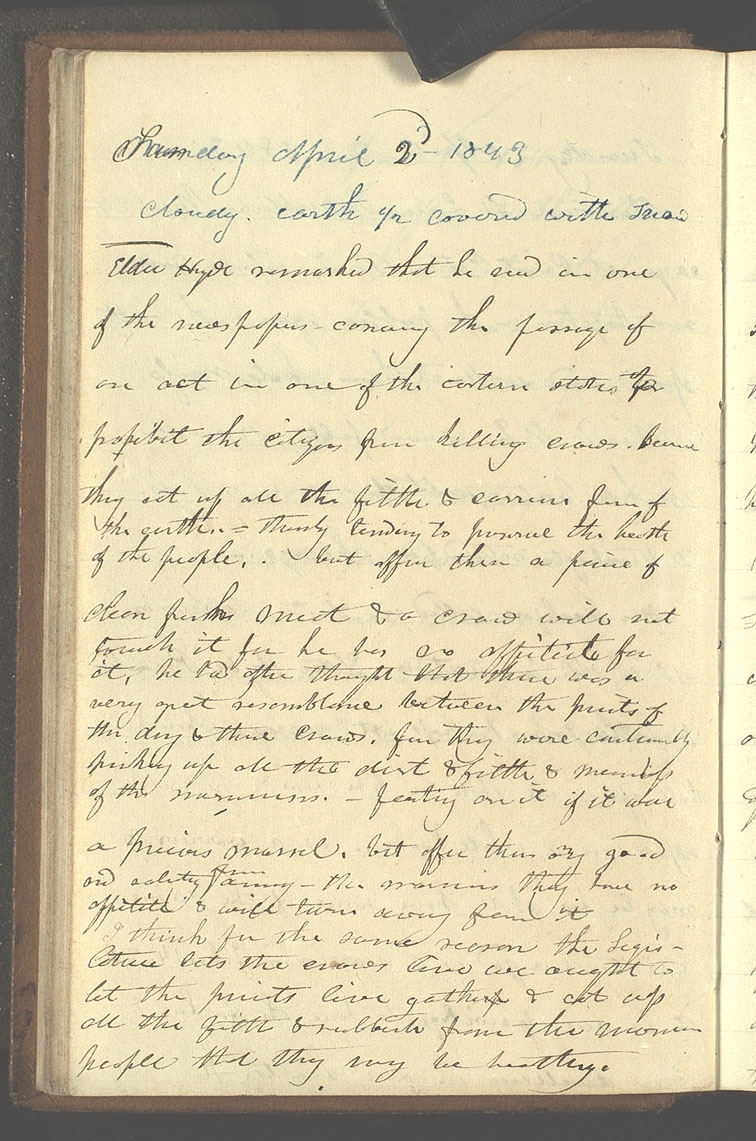 Sunday April 2d- 1843
cloudy. earth yr covered with snow
Elder Hyde remarked that he read in one
of the newspapers concerning the passage of
an act in one of the eastern states to
prohibit the citizens from killing crows. because
they eat up all the filth & carrion from of
the earth.= thereby tending to preserve the health
of the people.. but offer them a peice of
clean fresh meat & a crow will not
touch it for he has no appitite for
it, he had ofte thought that there was a
very great resemblance between the priests of
the day & these crows. for they were continually
picking up all the dirt & filth & meanness
of the mormons. - feasting on it if it was
a precious morsel. but offer them any good
and among the mormons they have no
appitite & will turn away from it
I think for the same reason the Legis-
lature lets the crows live we ought to
let the priests live gather & eat up
all the filth & rubbish from the mormon
people that they may be healthy.